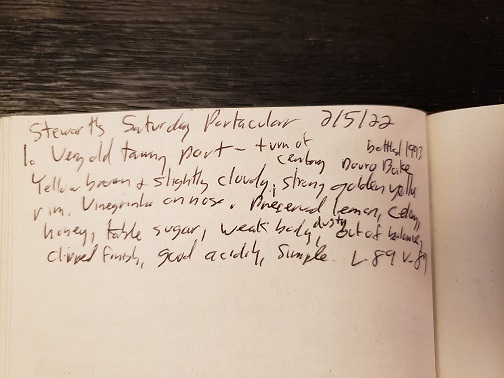 Stewart's Saturday Portacular 2/5/22
1. Very old tawny port - turn of century bottled 1993 Douro Bake
Yellow brown & slightly cloudy, strong golden yellow
rim. Vinegrinha on nose. Preserved lemon, celery,
honey, table sugar, weak body, dusty, out of balance,
clipped finish, good acidity, simple. L-89 V-89